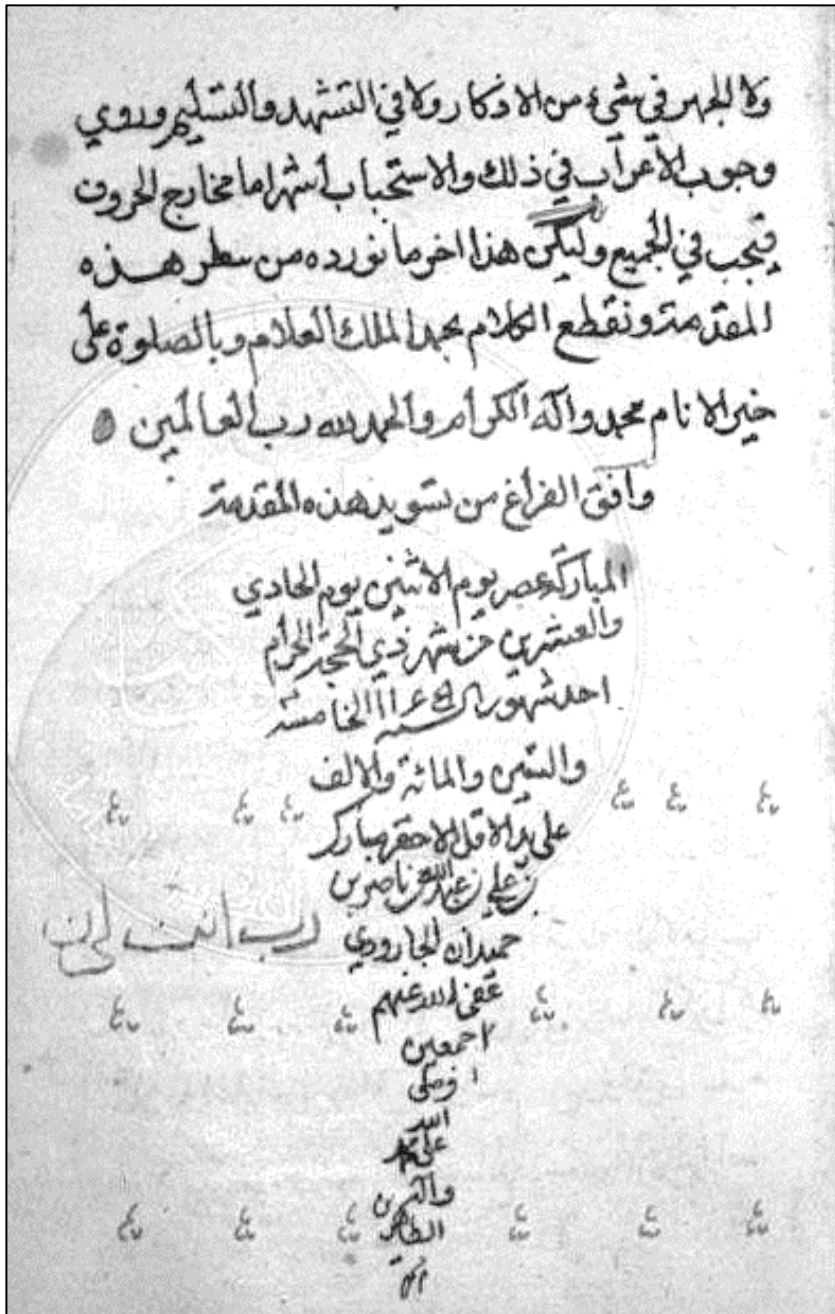 ولا الجهر في شيء من الاذكار ولا في التشهد والتسليم وروي
وجوب الأعراب في ذلك والاستحباب أشهر اما مخارج الحروف
فيجب في الجميع وليكن هذا اخر ما نورده من سطر هذه
المقدمة ونقطع الكلام بحمد الملك العلام وبالصلوة على
خير الانام محمد وآله الكرام والحمد لله رب العالمين
وافق الفراغ من تسويد هذه المقدمة
المباركة عصر يوم الاثنين يوم الحادي
والعشرين من شهر ذي الحجة الحرام
احد شهور سنة الخامسة
والستين والمائة والالف
على يد الاقل الاحقر مبارك
بن علي بن عبدالله بن ناصر بن
حميدان الجارودي
عفى الله عنهم
اجمعين
وصلى
الله
على محمد
وآله
الطاهرين
رب